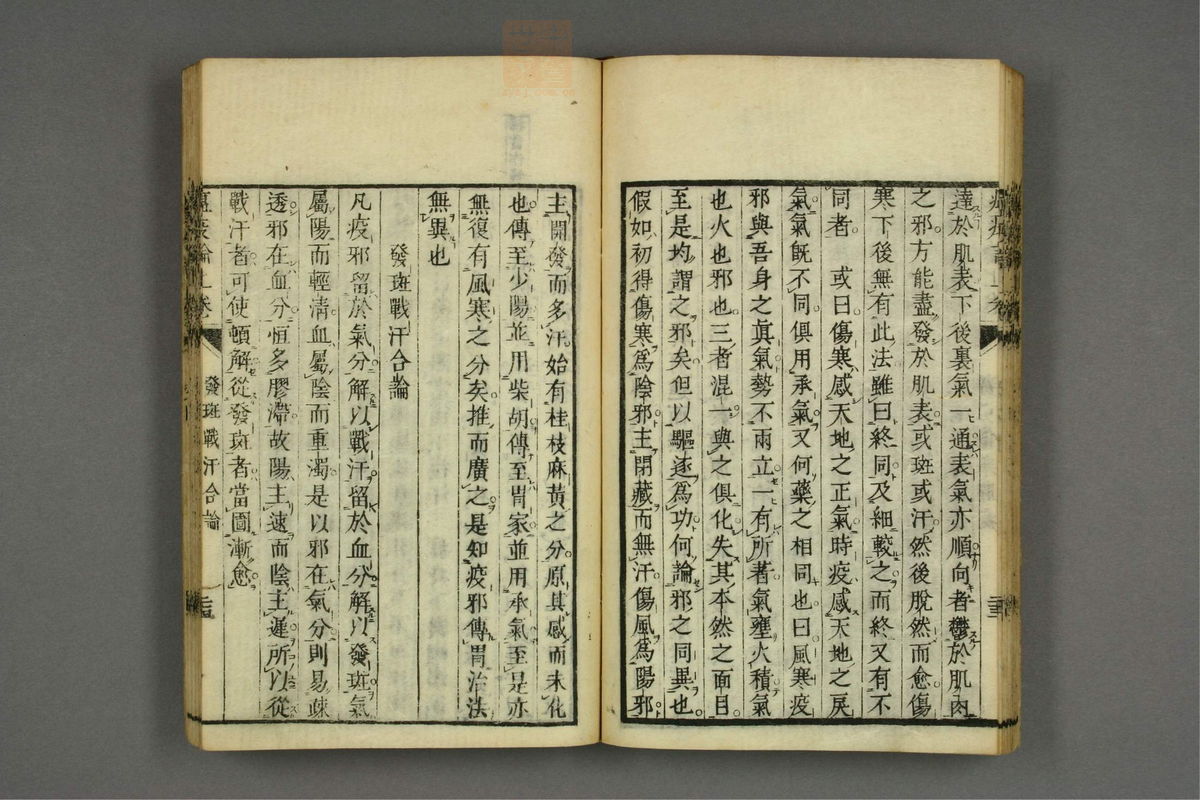 達於肌表下後裏氣一通表氣亦順向者鬱於肌肉
之邪方能盡發於肌表或斑或汗然後脫然而愈傷
寒下後無有此法雖曰終同及細較之而終又有不
同者　或曰傷寒感天地之正氣時疫感天地之戾
氣氣旣不同俱用承氣又何藥之相同也曰風寒疫
邪與吾身之眞氣勢不兩立一有所著氣壅火積氣
也火也邪也三者混一與之俱化失其本然之面目
至是均謂之邪矣但以驅逐爲功何論邪之同異也
假如初得傷寒爲陰邪主閉藏而無汗傷風爲陽邪
主開發而多汗始有桂枝麻黃之分原其感而未化
也傳至少陽並用柴胡傳至胃家並用承氣至是亦
無復有風寒之分矣推而廣之是知疫邪傳胃治法
無異也
發斑戰汗合論
凡疫邪留於氣分解以戰汗留於血分解以發斑氣
屬陽而輕清血屬陰而重濁是以邪在氣分則易疎
透邪在血分恒多膠滯故陽主速而陰主遲所以從
戰汗者可使頓解從發斑者當圖漸愈
瘟疫論上卷　發斑戰汗合論